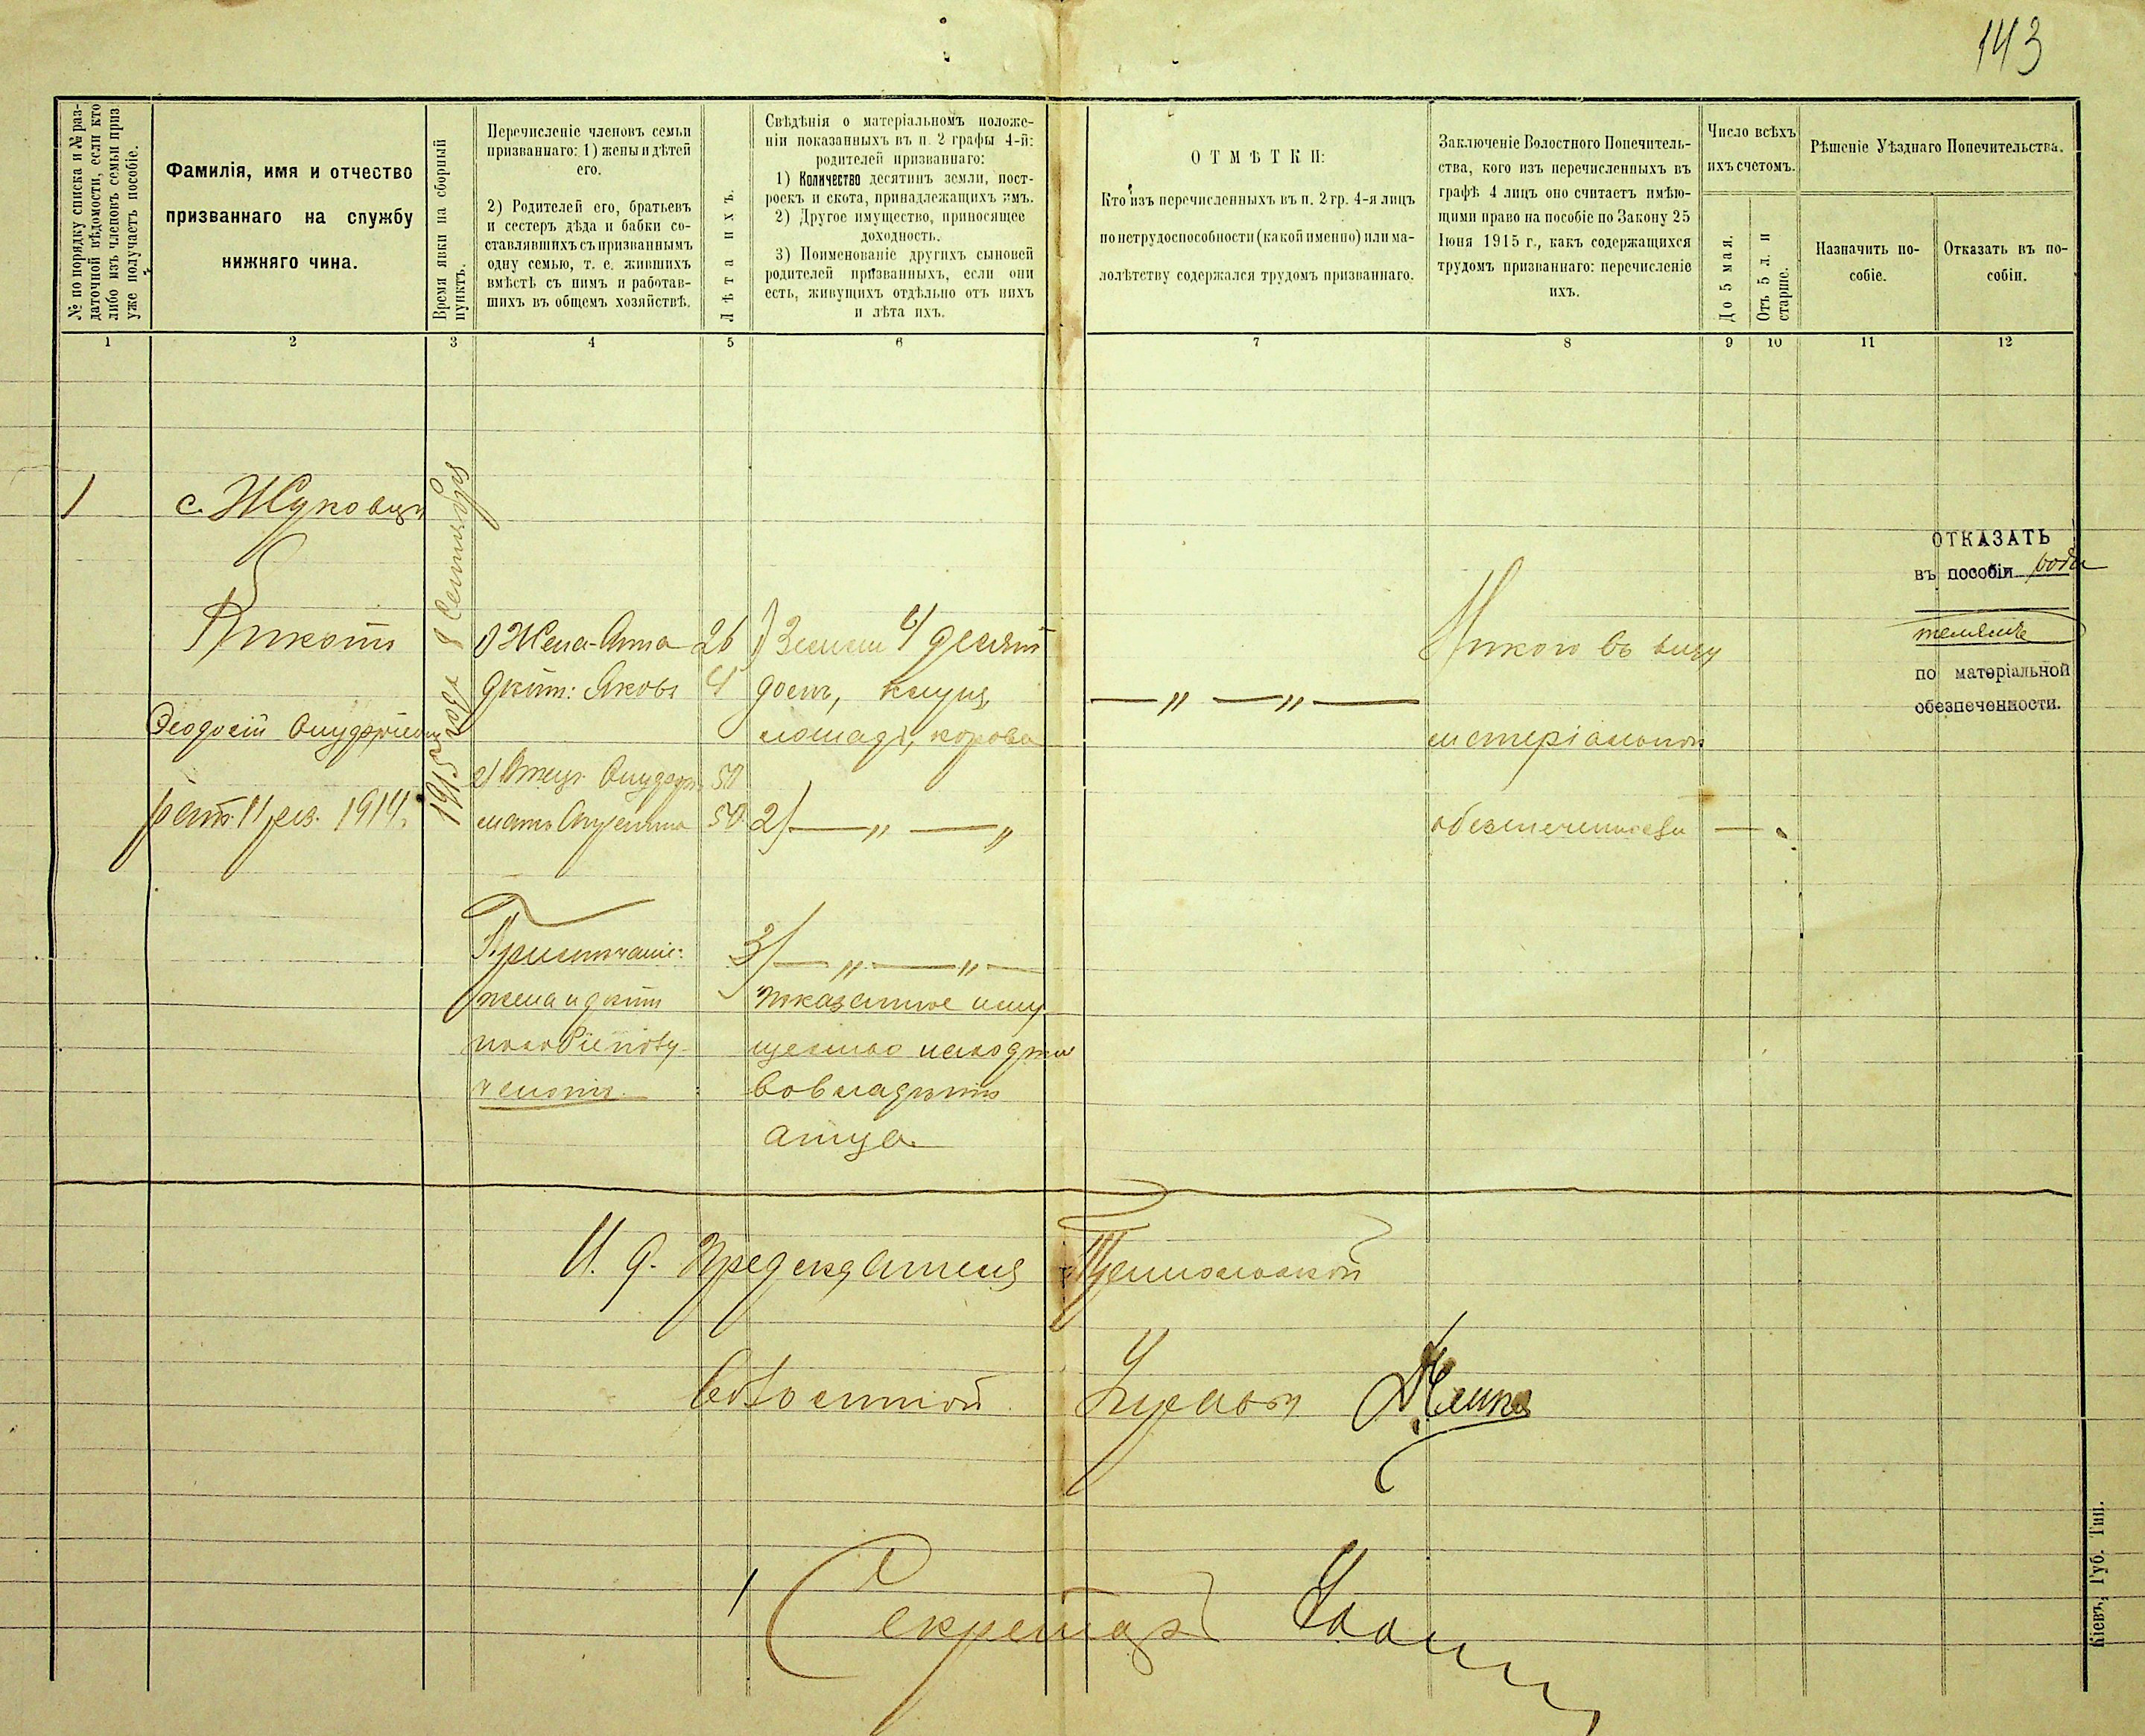 143
№ по порядку списка и № раз-
даточной вѣдомости, если кто
либо изъ членовъ семьи приз
уже получаетъ пособіе.
Фамилія, имя и отчество
призваннаго на службу
нижняго чина.
Время явки на сборный
пунктъ.
Перечисленіе членовъ семьи
призваннаго: 1) жены и дѣтей
его.
2) Родителей его, братьевъ
и сестеръ дѣда и бабки со-
ставлявшихъ съ призваннымъ
одну семью, т. е. жившихъ
вмѣстѣ съ нимъ и работав-
шихъ въ общемъ хозяйствѣ.
Лѣта ихъ.
Свѣдѣнія о матеріальномъ положе-
ніи показанныхъ въ п. 2 графы 4-й:
родителей призваннаго:
1) Количество десятинъ земли, пост-
роекъ и скота, принадлежащихъ имъ.
2) Другое имущество, приносящее
доходность.
3) Поименованіе другихъ сыновей
родителей призванныхъ, если они
есть, живущихъ отдѣльно отъ нихъ
и лѣта ихъ.
ОТМѢТКИ:
Кто изъ перечисленныхъ въ п. 2 гр. 4-я лицъ
по нетрудоспособности (какой именно) или ма-
лолѣтству содержался трудомъ призваннаго.
Заключеніе Волостного Попечитель-
ства, кого изъ перечисленныхъ въ
графѣ 4 лицъ оно считаетъ имѣю-
щими право на пособіе по Закону 25
Іюня 1915 г., какъ содержащихся
трудомъ призваннаго: перечисленіе
ихъ.
Число всѣхъ
ихъ счетомъ.
До 5 мая.
Отъ 5 л. и
старше.
Рѣшеніе Уѣзднаго Попечительства.
Назначить по-
собіе.
Отказать въ по-
собіи.
1 2 3 4 5 6 7 8 9 10 11 12
1
с. Жуковцы
Феодосій
рат. 11 раз. 1914
1915 года 8 Сентября
1) Жена-Анна 26
дѣти: Яковъ 4
2) Отецъ 50
мать 50
Примѣчаніе:
жена и дѣти
пособіе полу-
чаютъ.
1) Земли 4 десят
домъ, клуня,
лошадь, корова
2) — „ — „
3) — „ — „ —
показанное иму-
щество находит
во владѣніи
отца.
— „ — „ —
Никого въ виду
матеріальной
обезпеченности —
ОТКАЗАТЬ
въ пособіи роди
телямъ
по матеріальной
обезпеченности.
И. д. Предсѣдателя
Волостной Управы
Секретарь
Кіевъ, Губ. Тип.